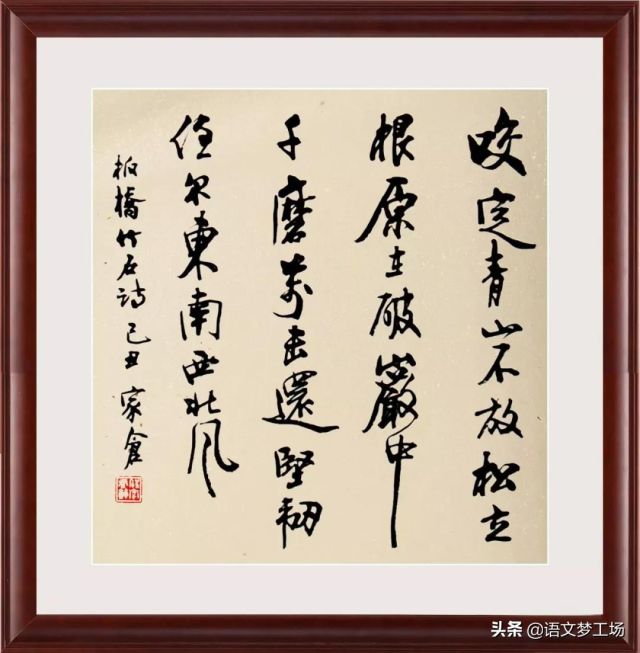 咬定青山不放松立
根原在破巖中
千磨萬击還堅韌
任尔東南西北风
板橋竹石诗 己丑 家倉
头条 @语文梦工场